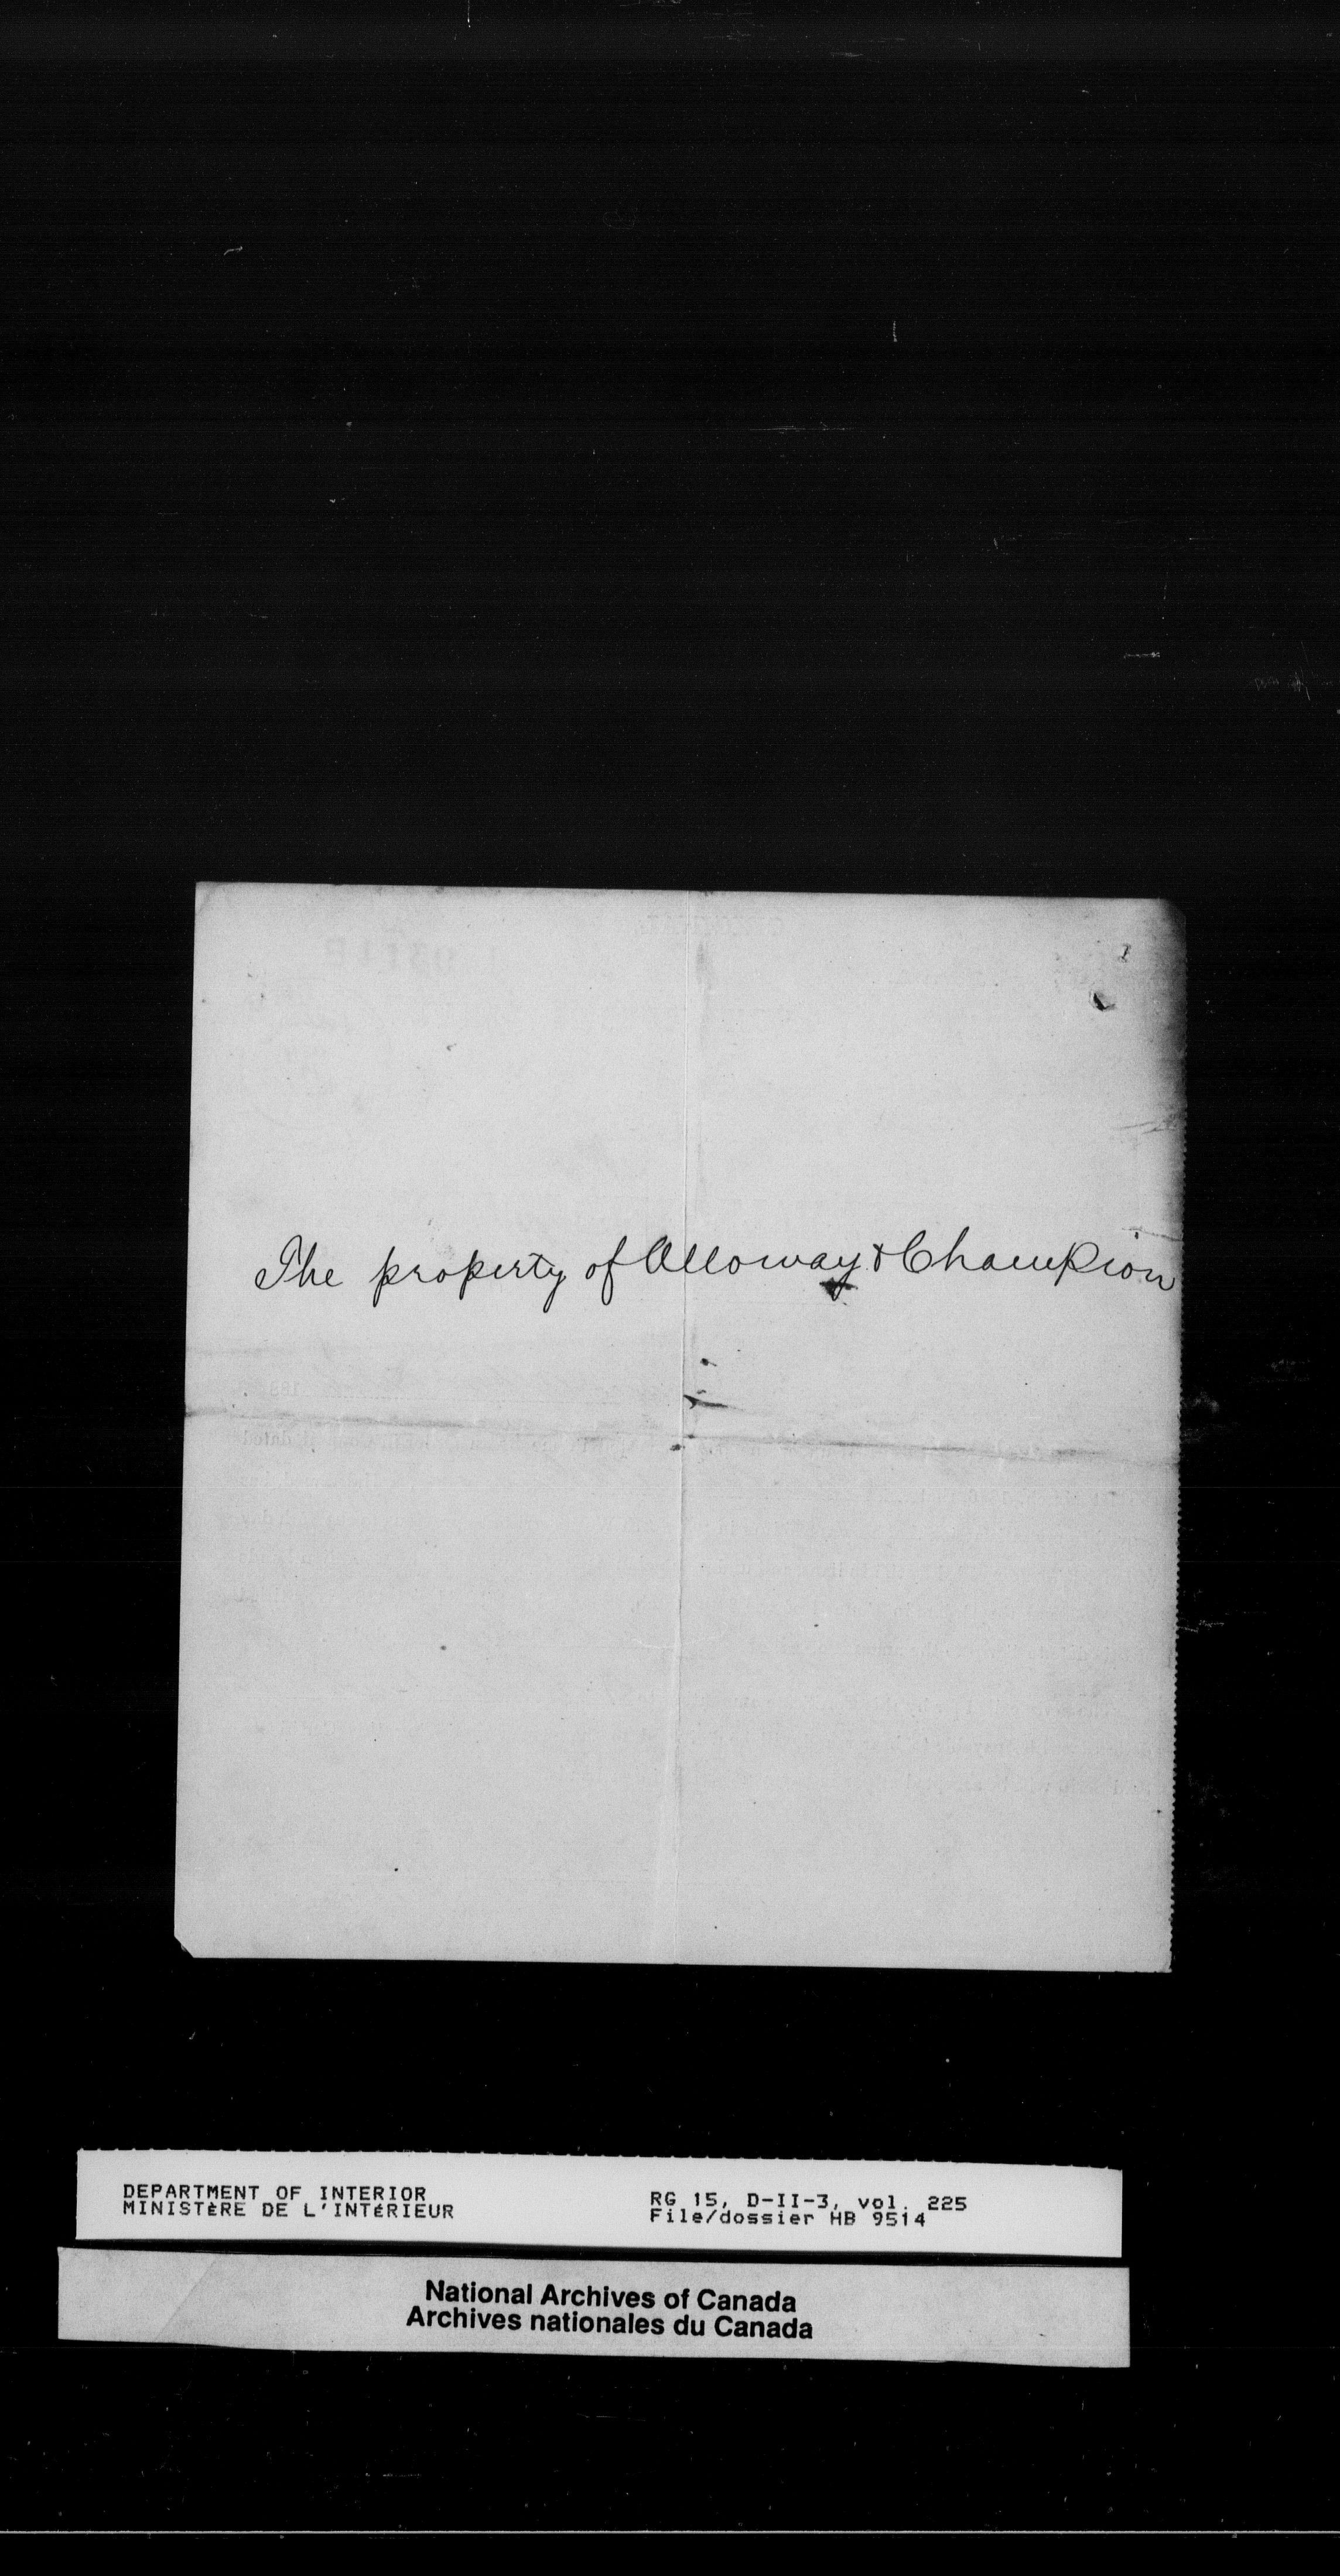 The property of Alloway & Champion
DEPARTMENT OF INTERIOR
MINISTÈRE DE L'INTÉRIEUR
RG 15, D-II-3, vol. 225
File/dossier HB 9514
National Archives of Canada
Archives nationales du Canada